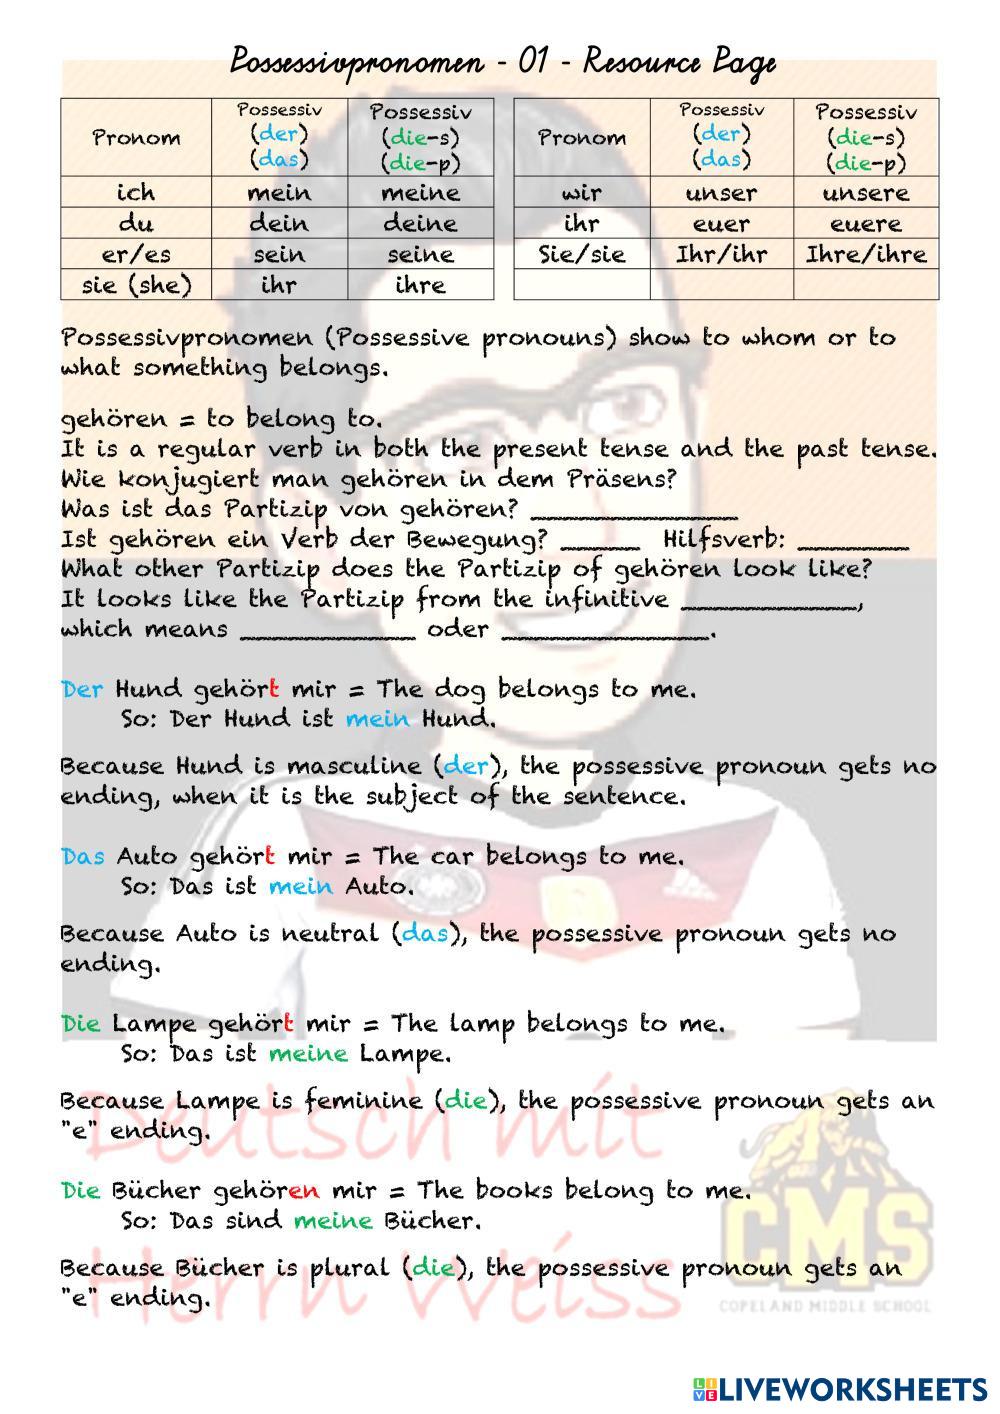 Possessivpronomen - 01 - Resource Page
Pronom Possessiv (der) (das) Possessiv (die-s) (die-p)
ich mein meine
du dein deine
er/es sein seine
sie (she) ihr ihre
Pronom Possessiv (der) (das) Possessiv (die-s) (die-p)
wir unser unsere
ihr euer euere
Sie/sie Ihr/ihr Ihre/ihre
Possessivpronomen (Possessive pronouns) show to whom or to
what something belongs.
gehören = to belong to.
It is a regular verb in both the present tense and the past tense.
Wie konjugiert man gehören in dem Präsens?
Was ist das Partizip von gehören? _____________
Ist gehören ein Verb der Bewegung? _____ Hilfsverb: _______
What other Partizip does the Partizip of gehören look like?
It looks like the Partizip from the infinitive ___________,
which means ___________ oder _____________.
Der Hund gehört mir = The dog belongs to me.
So: Der Hund ist mein Hund.
Because Hund is masculine (der), the possessive pronoun gets no
ending, when it is the subject of the sentence.
Das Auto gehört mir = The car belongs to me.
So: Das ist mein Auto.
Because Auto is neutral (das), the possessive pronoun gets no
ending.
Die Lampe gehört mir = The lamp belongs to me.
So: Das ist meine Lampe.
Because Lampe is feminine (die), the possessive pronoun gets an
"e" ending.
Die Bücher gehören mir = The books belong to me.
So: Das sind meine Bücher.
Because Bücher is plural (die), the possessive pronoun gets an
"e" ending.
Deutsch mit
Herrn Weiss
CMS
COPELAND MIDDLE SCHOOL
LIVE LIVEWORKSHEETS